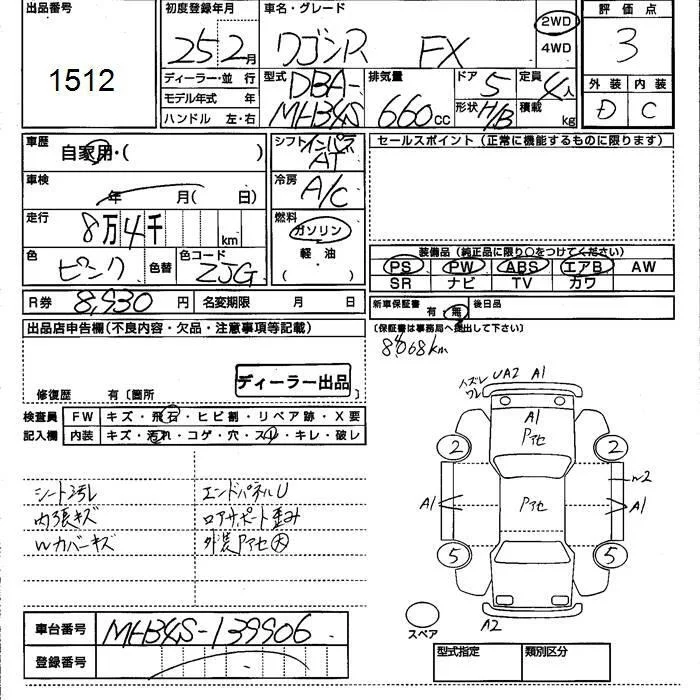 出品番号
1512
初度登録年月
25年2月
ディーラー・並行
モデル年式 年
ハンドル 左・右
車名・グレード
ワゴンR FX
2WD
4WD
型式
DBA-
MH34S
排気量
660cc
ドア
5
形状
H/B
定員
4人
積載
kg
評価点
3
外装 内装
D C
車歴
自家用・( )
車検
年 月( 日)
走行
8万4千 km
色
ピンク
色替
色コード
ZJG
シフト
インパネ
AT
冷房
A/C
燃料
ガソリン
軽油
( )
R券 8,930円 名変期限 月 日
セールスポイント (正常に機能するものに限ります)
装備品(純正品に限り○をつけてください)
PS PW ABS エアB AW
SR ナビ TV カワ
新車保証書 有・無 後日品
(保証書は事務局へ提出して下さい)
84068km
出品店申告欄(不良内容・欠品・注意事項等記載)
ディーラー出品
修復歴 有〔箇所 〕
検査員
記入欄
FW キズ・飛石・ヒビ割・リペア跡・X要
内装 キズ・汚れ・コゲ・穴・スレ・キレ・破レ
シートヨゴレ
内張キズ
Wカバーキズ
エンドパネルU
ロアサポート歪み
外装アセ大
ハズレ
ワレ
UA2 A1
A1
アセ
2 2
W2
A1 アセ A1
5 5
スペア
A2
車台番号 MH34S-139906
登録番号
型式指定 類別区分